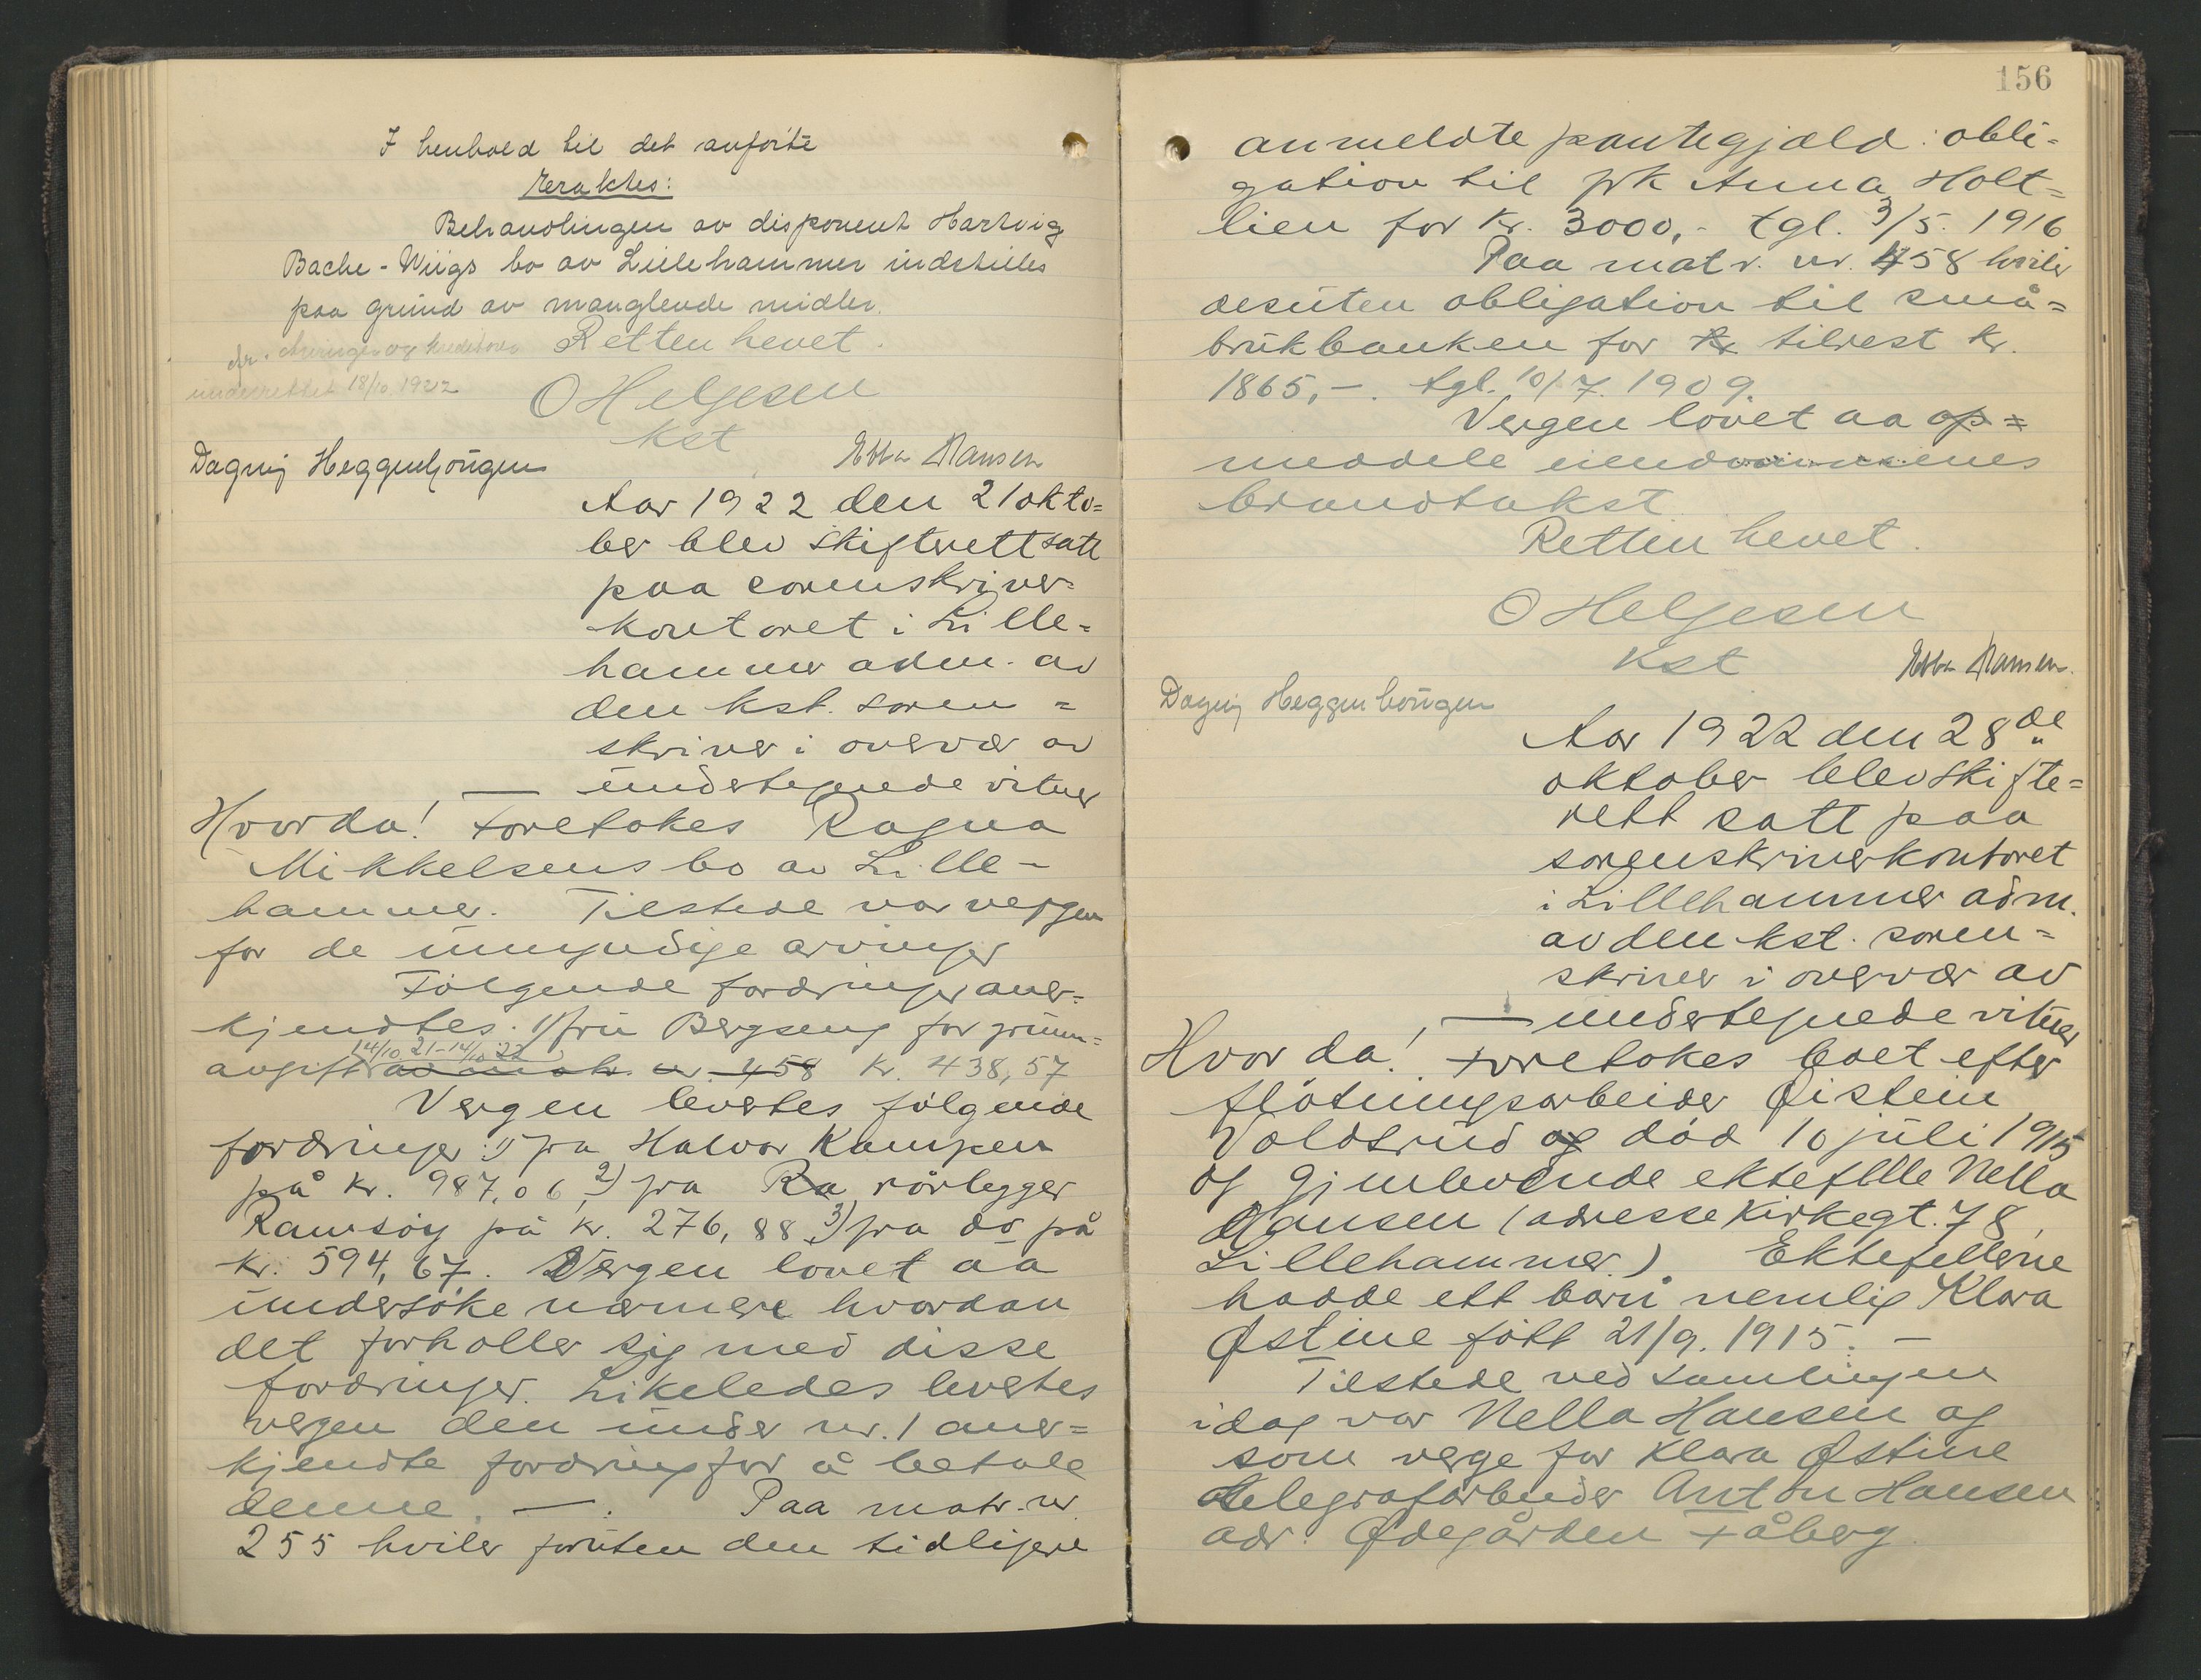 I henhold til det anførte
Eraktes:
Behandlingen av disponent Hartvig
Bache-Wiigs bo av Lillehammer indstilles
paa grund av manglende midler.
Retten hevet.
og kreditorer
underrettet 18/10 1922
O Helgesen
kst
Dagny Heggenhougen
Ebba Hansen
Aar 1922 den 21 okto=
ber blev skifterett satt
paa sorenskriver=
kontoret i Lille=
hammer adm. av
den kst. soren=
skriver i overvær av
— undertegnede vitner
Hvorda! Foretokes Ragna
Mikkelsens bo av Lille-
hammer. Tilstede var vergen
for de umyndige arvinger
Følgende fordringer aner=
kjendtes. 1) fru Bergseng for grunn=
14/10 21-14/10 22
avgift av matr. nr. 458 kr. 438,57
Vergen levertes følgende
fordringer: 1) fra Halvor Kampen
på kr. 987,06 2) fra Ra rørlegger
Ramsøy på kr. 276,88 3) fra do på
kr. 594,67. Vergen lovet aa
undersøke nærmere hvordan
det forholler sig med disse
fordringer. Likeledes levertes
vergen den under nr. 1 aner=
kjendte fordring for å betale
denne. —. Paa matr. nr.
255 hviler foruten den tidligere
156
anmeldte pantegjæld: obli=
gation til frk Anna Holt=
lien for kr. 3000,- tgl. 3/5. 1916
Paa matr. nr. 458 hviler
desuten obligation til små=
brukbanken for kr tilrest kr.
1865,-. tgl. 10/7. 1909.
Vergen lovet aa op=
meddele eiendommenes
brandtakst.
Retten hevet.
O Helgesen
kst
Ebba Hansen.
Dagny Heggenhougen
Aar 1922 den 28de
oktober blev skifte=
rett satt paa
sorenskriverkontoret
i Lillehammer adm.
av den kst. soren=
skriver i overvær av
— undertegnede vitner
Hvor da! Foretokes boet efter
fløtningsarbeider Øistein
Voldsrud og død 10 juli 1915
og gjenlevende ektefelle Nella
Hansen (adresse Kirkegt. 78,
Lillehammer). Ektefellerne
hadde ett barn nemlig Klara
Østine født 21/9. 1915. —
Tilstede ved samlingen
idag var Nella Hansen og
som verge for Klara Østine
telegrafarbeider Anton Hansen
adr. Ødegården Fåberg.